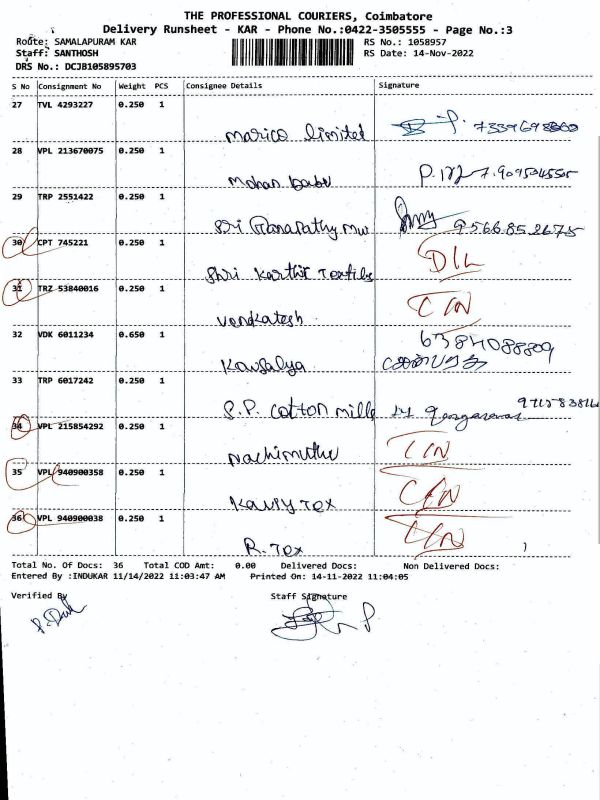 THE PROFESSIONAL COURIERS, Coimbatore
Delivery Runsheet - KAR - Phone No.:0422-3505555 - Page No.:3
Route: SAMALAPURAM KAR RS No.: 1058957
Staff: SANTHOSH RS Date: 14-Nov-2022
DRS No.: DCJB105895703
S No Consignment No Weight PCS Consignee Details Signature
27 TVL 4293227 0.250 1
Marico limited
28 VPL 213670075 0.250 1
Mohan babu
29 TRP 2551422 0.250 1
Sri Ganapathy 9566852675
30 CPT 745221 0.250 1
Shri Karthik Textiles D/L
31 TRZ 53840016 0.250 1
Venkatesh
32 VDK 6011234 0.650 1 6384088809
Kowsalya
33 TRP 6017242 0.250 1
S.P. Cotton mills
34 VPL 215854292 0.250 1
Nachimuthu
35 VPL 940900358 0.250 1
Kaviy Tex
36 VPL 940900038 0.250 1
R. Tex
Total No. Of Docs: 36 Total COD Amt: 0.00 Delivered Docs: Non Delivered Docs:
Entered By :INDUKAR 11/14/2022 11:03:47 AM Printed On: 14-11-2022 11:04:05
Verified By Staff Signature